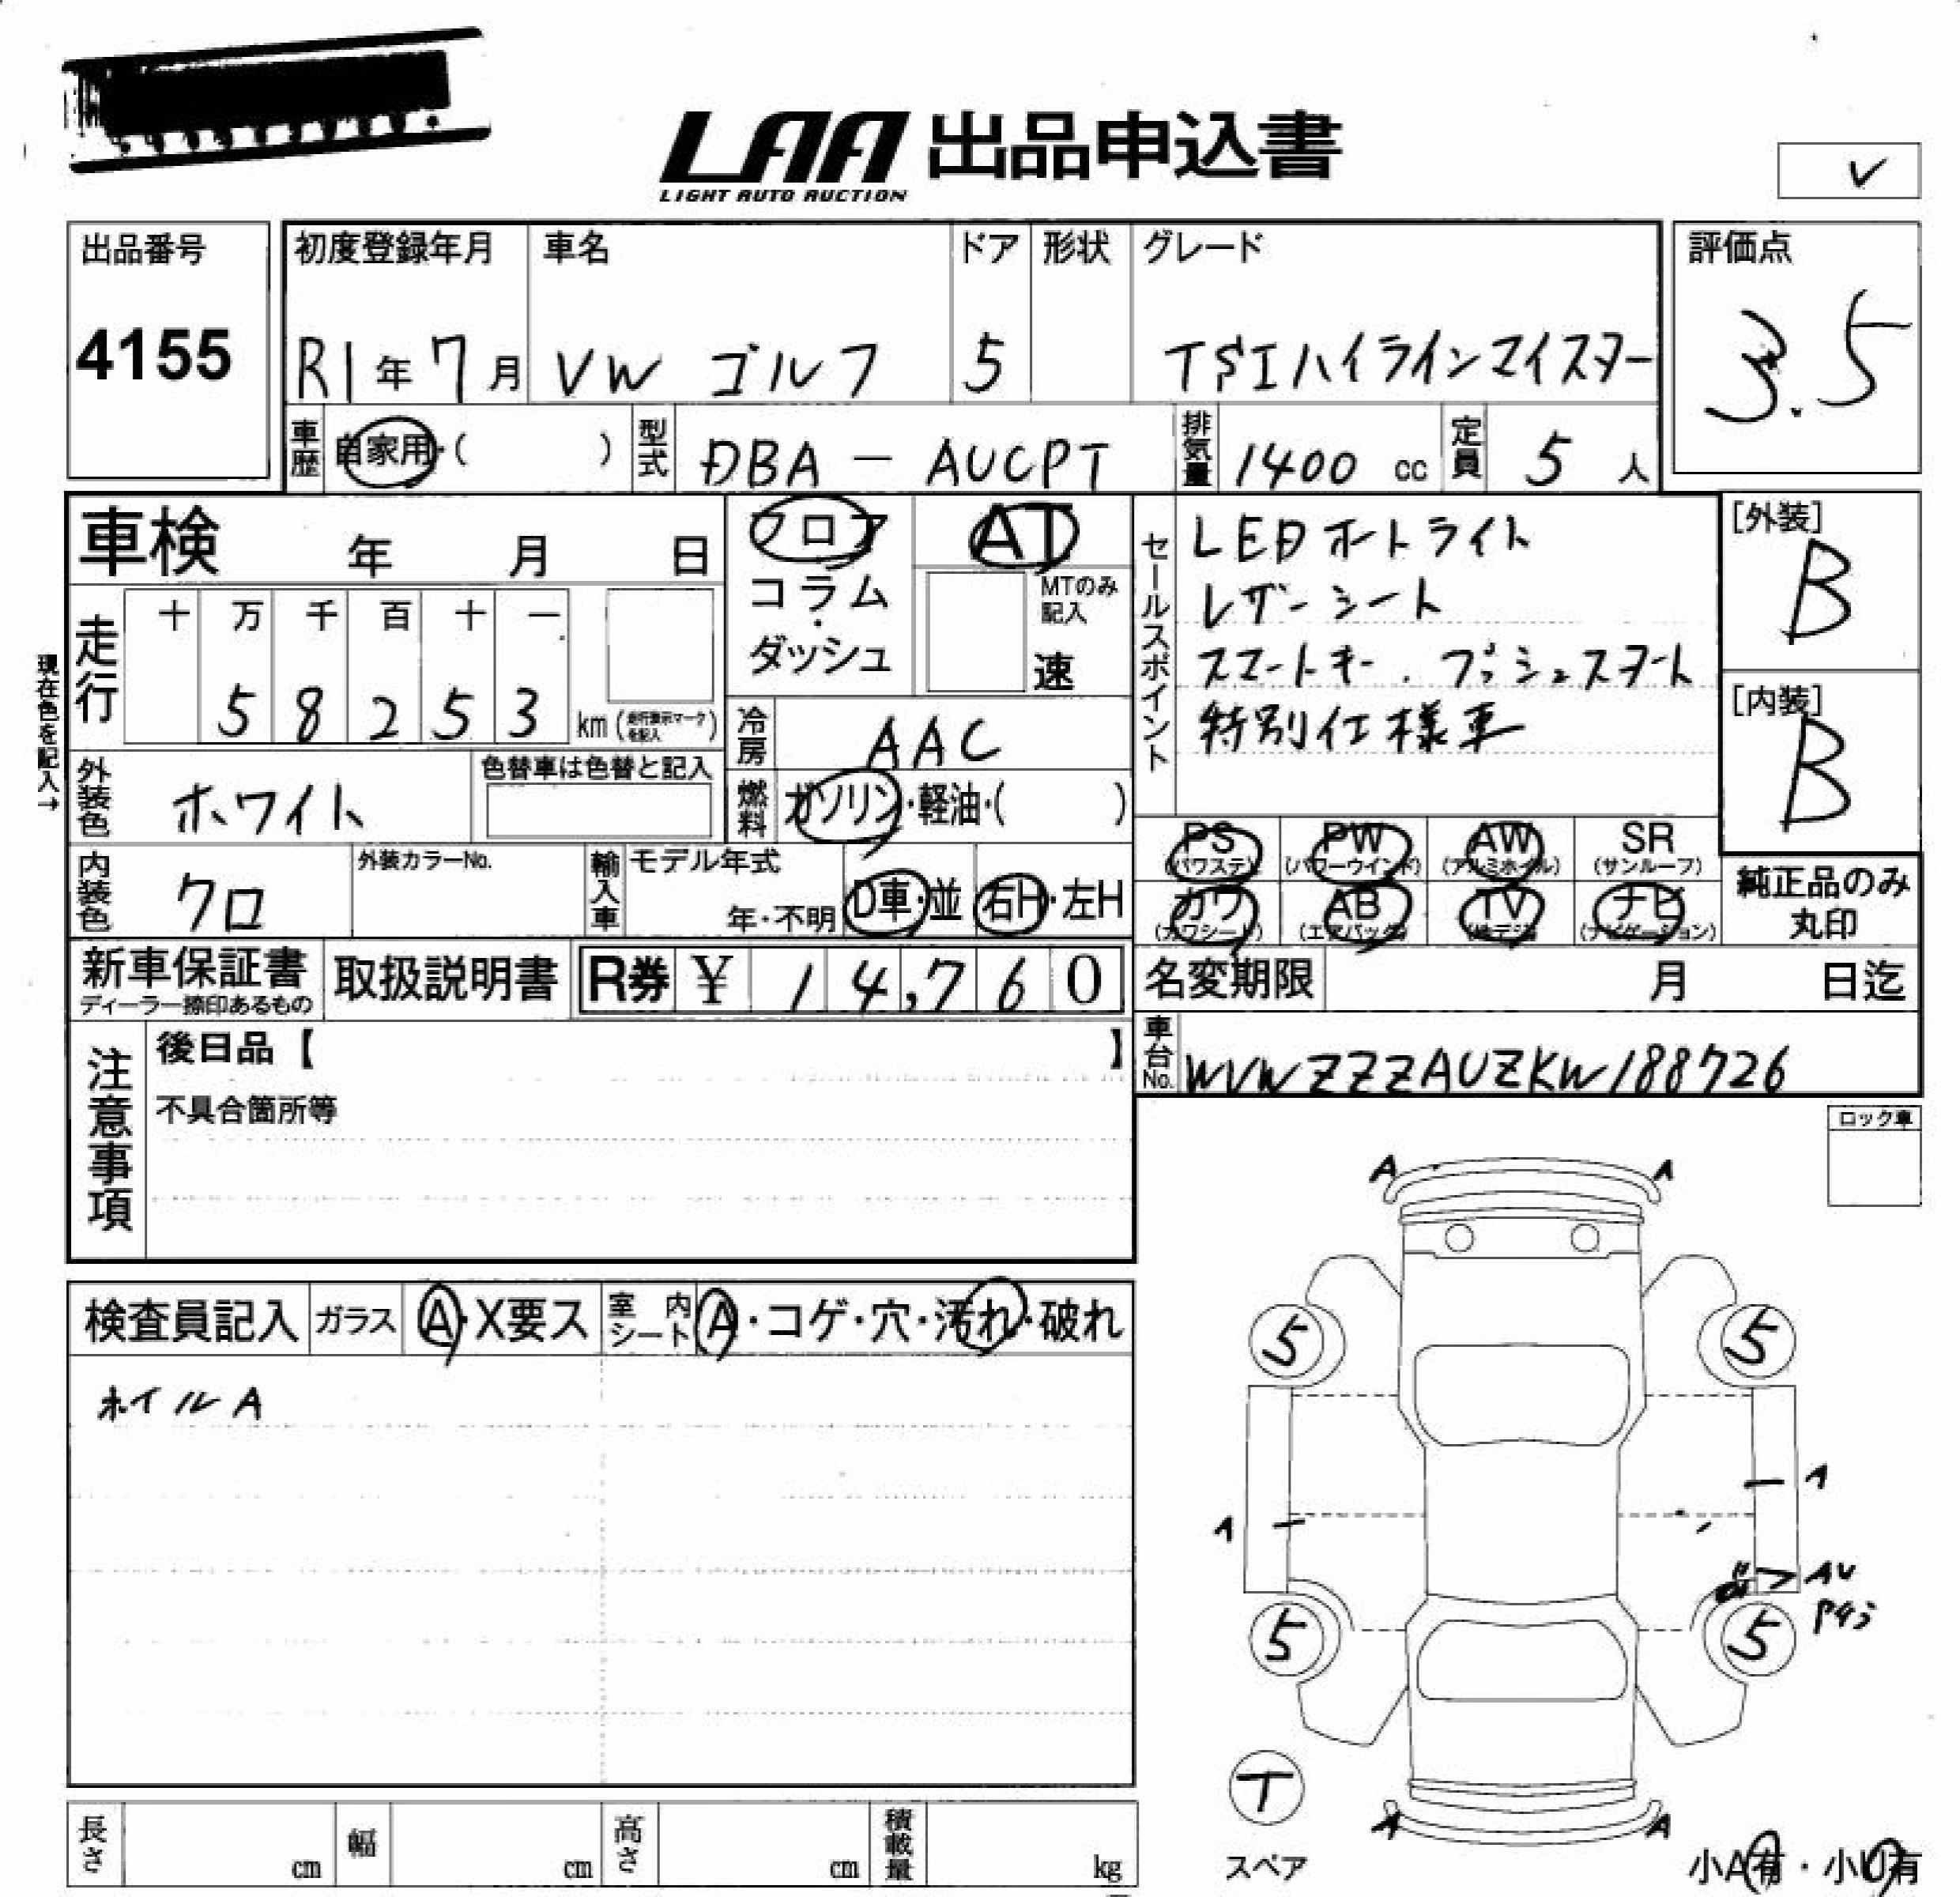 LAA 出品申込書
LIGHT AUTO AUCTION
V
出品番号
4155
初度登録年月 車名 ドア 形状 グレード
R1年7月 VW ゴルフ 5 TSIハイラインマイスター
評価点
3.5
車歴 自家用・( ) 型式 DBA-AUCPT 排気量 1400 cc 定員 5 人
車検 年 月 日
フロア
コラム
・
ダッシュ
AT
MTのみ
記入
速
セールスポイント
LEDホートライト
レザーシート
スマートキー.プッシュスタート
特別仕様車
[外装]
B
[内装]
B
現在色を記入→
走行 十 万 千 百 十 一
5 8 2 5 3 km(走行表示マークを記入)
冷房 AAC
外装色 ホワイト 色替車は色替と記入
燃料 ガソリン・軽油・( )
PS PW AW SR
(パワステ) (パワーウインド) (アルミホイル) (サンルーフ)
カワ AB TV ナビ
(カワシート) (エアバック) (地デジ) (ナビゲーション)
純正品のみ
丸印
内装色 クロ 外装カラーNo. 輸入車 モデル年式
年・不明 D車・並 右H・左H
新車保証書 取扱説明書 R券 ¥ 14,760
ディーラー捺印あるもの
名変期限 月 日迄
車台No. WVWZZZAUZKW188726
注意事項
後日品【 】
不具合箇所等
ロック車
検査員記入 ガラス A・X要ス 室内シート A・コゲ・穴・汚れ・破れ
ホイルA
A A
5 5
1
1
AU
5 5
T
スペア
A A
小A有・小U有
長さ cm 幅 cm 高さ cm 積載量 kg